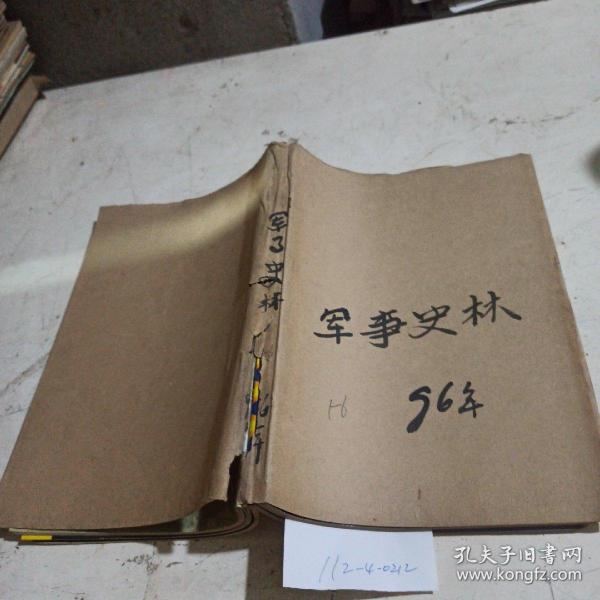 军事史林
1-6
96年
军
史林
96年
112-4-0212
孔夫子旧书网
www.kongfz.com